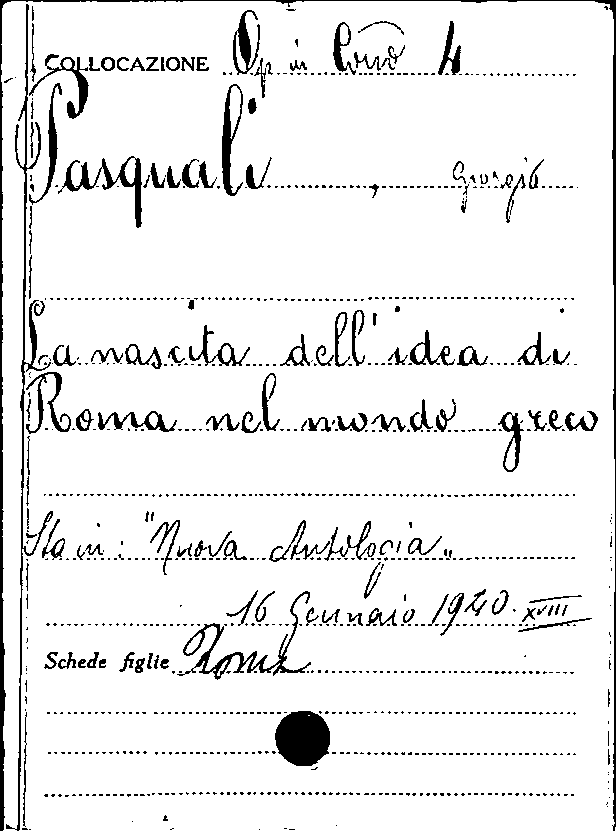 COLLOCAZIONE Op in 4
Pasquali, Giorgio
La nascita dell'idea di
Roma nel mondo greco
Sta in: "Nuova Antologia„
16 Gennaio 1940. XVIII
Schede figlie Roma